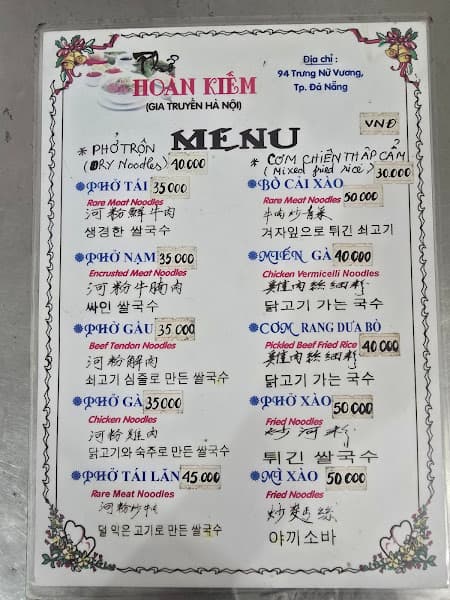 Phở
HOÀN KIẾM
(GIA TRUYỀN HÀ NỘI)
Địa chỉ :
94 Trưng Nữ Vương,
Tp. Đà Nẵng
MENU
VNĐ
* PHỞ TRỘN
(DRY Noodles) 40.000
PHỞ TÁI 35 000
Rare Meat Noodles
河粉鮮牛肉
생경한 쌀국수
PHỞ NẠM 35.000
Encrusted Meat Noodles
河粉牛腩肉
싸인 쌀국수
PHỞ GÂU 35.000
Beef Tendon Noodles
河粉解肉
쇠고기 심줄로 만든 쌀국수
PHỞ GÀ 35000
Chicken Noodles
河粉雞肉
닭고기와 숙주로 만든 쌀국수
PHỞ TÁI LĂN 45 000
Rare Meat Noodles
河粉炒牛
덜 익은 고기로 만든 쌀국수
* CƠM CHIÊN THẬP CẨM
(Mixed fried rice) 30.000
BÒ CẢI XÀO
Rare Meat Noodles 50 000
牛肉炒青菜
겨자잎으로 튀긴 쇠고기
MIẾN GÀ 40000
Chicken Vermicelli Noodles
雞肉絲細粉
닭고기 가는 국수
CƠM RANG DƯA BÒ
Pickled Beef Fried Rice 40 000
雞肉絲細粉
닭고기 가는 국수
PHỞ XÀO 50 000
Fried Noodles
炒河粉
튀긴 쌀국수
MÌ XÀO 50 000
Fried Noodles
炒麵絲
야끼소바